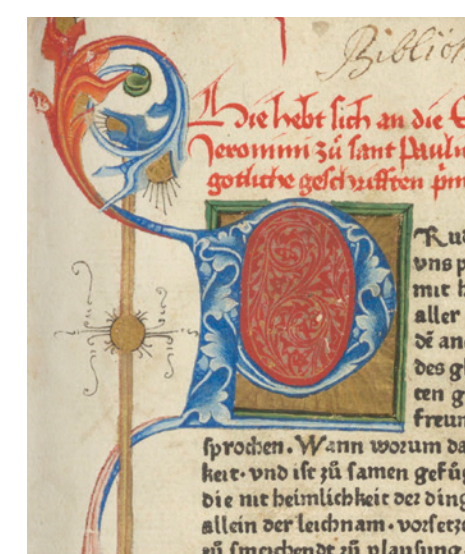 Biblioth
Hie hebt sich an die E
Jeronimi zů sant Paulu
gotliche geschrifften
BRud
vns p
mit h
aller
dē an
des gl
ten g
freun
sprochen. Wann worum da
keit· vnd ist zů samen gefůg
die nit heimlichkeit der ding
allein der leichnam· vorsetze
zů smeichendt zů plausung